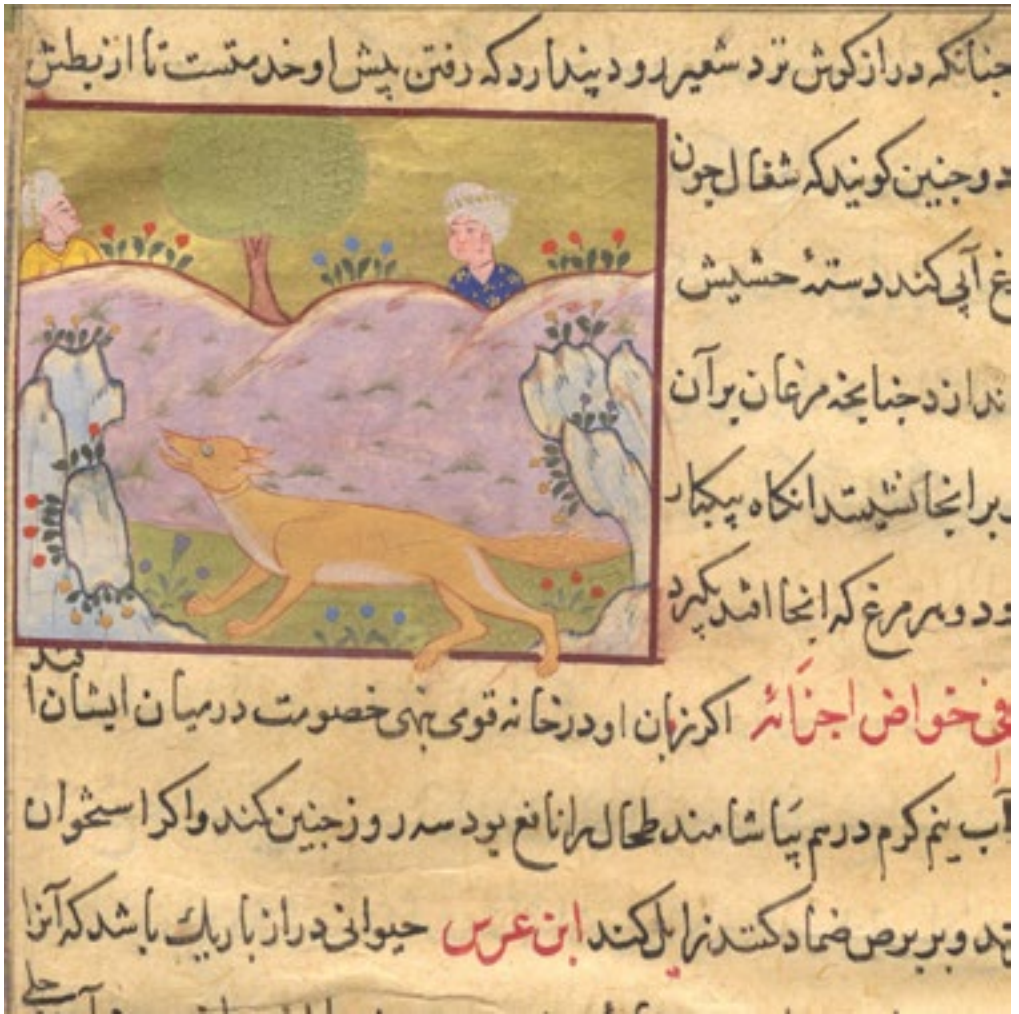 جنانکه درازکوش نزد شعیر رود پندارد که رفتن پیش او خدمتست تا از بطش
و جنین کویند که شغال جون
آبی کند دستهٔ حشیش
جنانجه مرغان بر آن
بر انجا نشینند انکاه بیکبار
و هر مرغ که انجا افتد بکیرد
فی خواص اجزائه اکر زبان او در خانه قومی نهی خصومت در میان ایشان افتد
آب نیم کرم درهم بیاشامند طحال را نافع بود سه روز جنین کند و اکر استخوان
و بر برص ضماد کنند زایل کند ابن عرس حیوانی دراز باریك باشد که آنرا